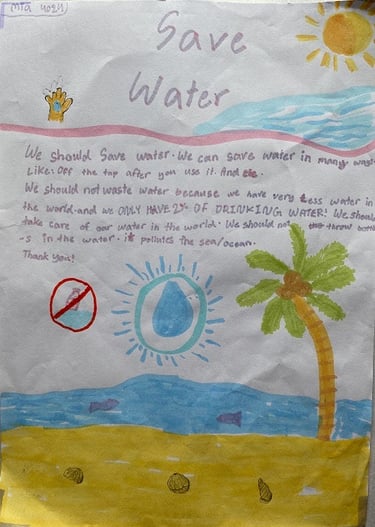 Mia
Save
Water
We should Save water. We can save water in many ways
Like: Off the tap after you use it. And
We should not waste water because we have very Less water in
the world. and we ONLY HAVE 2% OF DRINKING WATER! We should
take care of our water in the world. We should not throw bottle
-s In the water. it pollutes the sea/ocean.
Thank you!